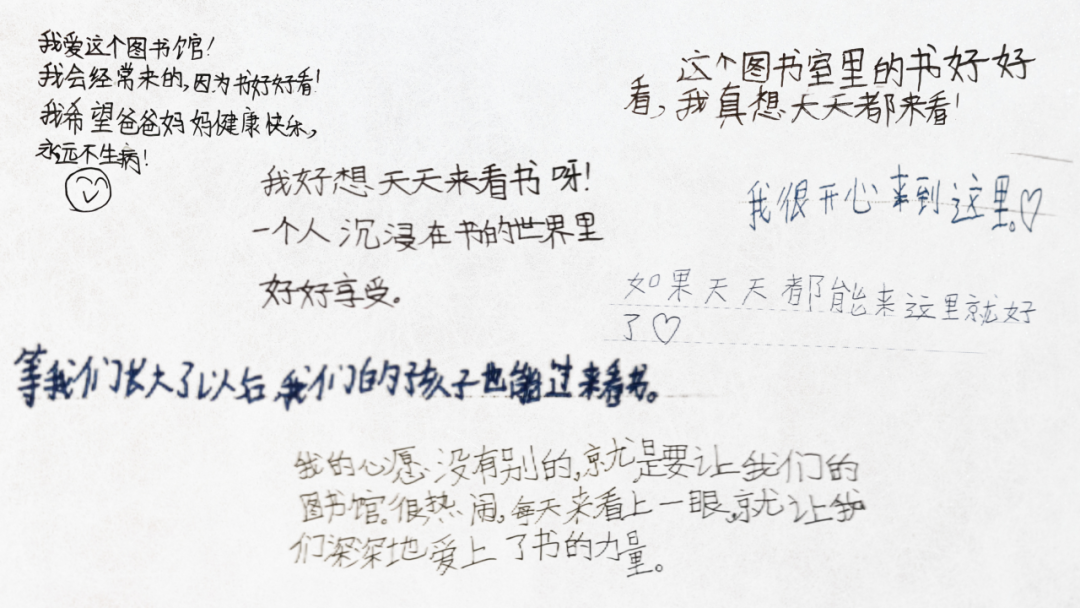 我爱这个图书馆!
我会经常来的,因为书好好看!
我希望爸爸妈妈健康快乐,
永远不生病!
这个图书室里的书好好
看,我真想天天都来看!
我好想天天来看书呀!
一个人沉浸在书的世界里
好好享受。
我很开心来到这里。♡
如果天天都能来这里就好
了♡
等我们长大了以后,我们的孩子也能过来看书。
我的心愿没有别的,就是要让我们的
图书馆。很热闹,每天来看上一眼,就让我
们深深地爱上了书的力量。